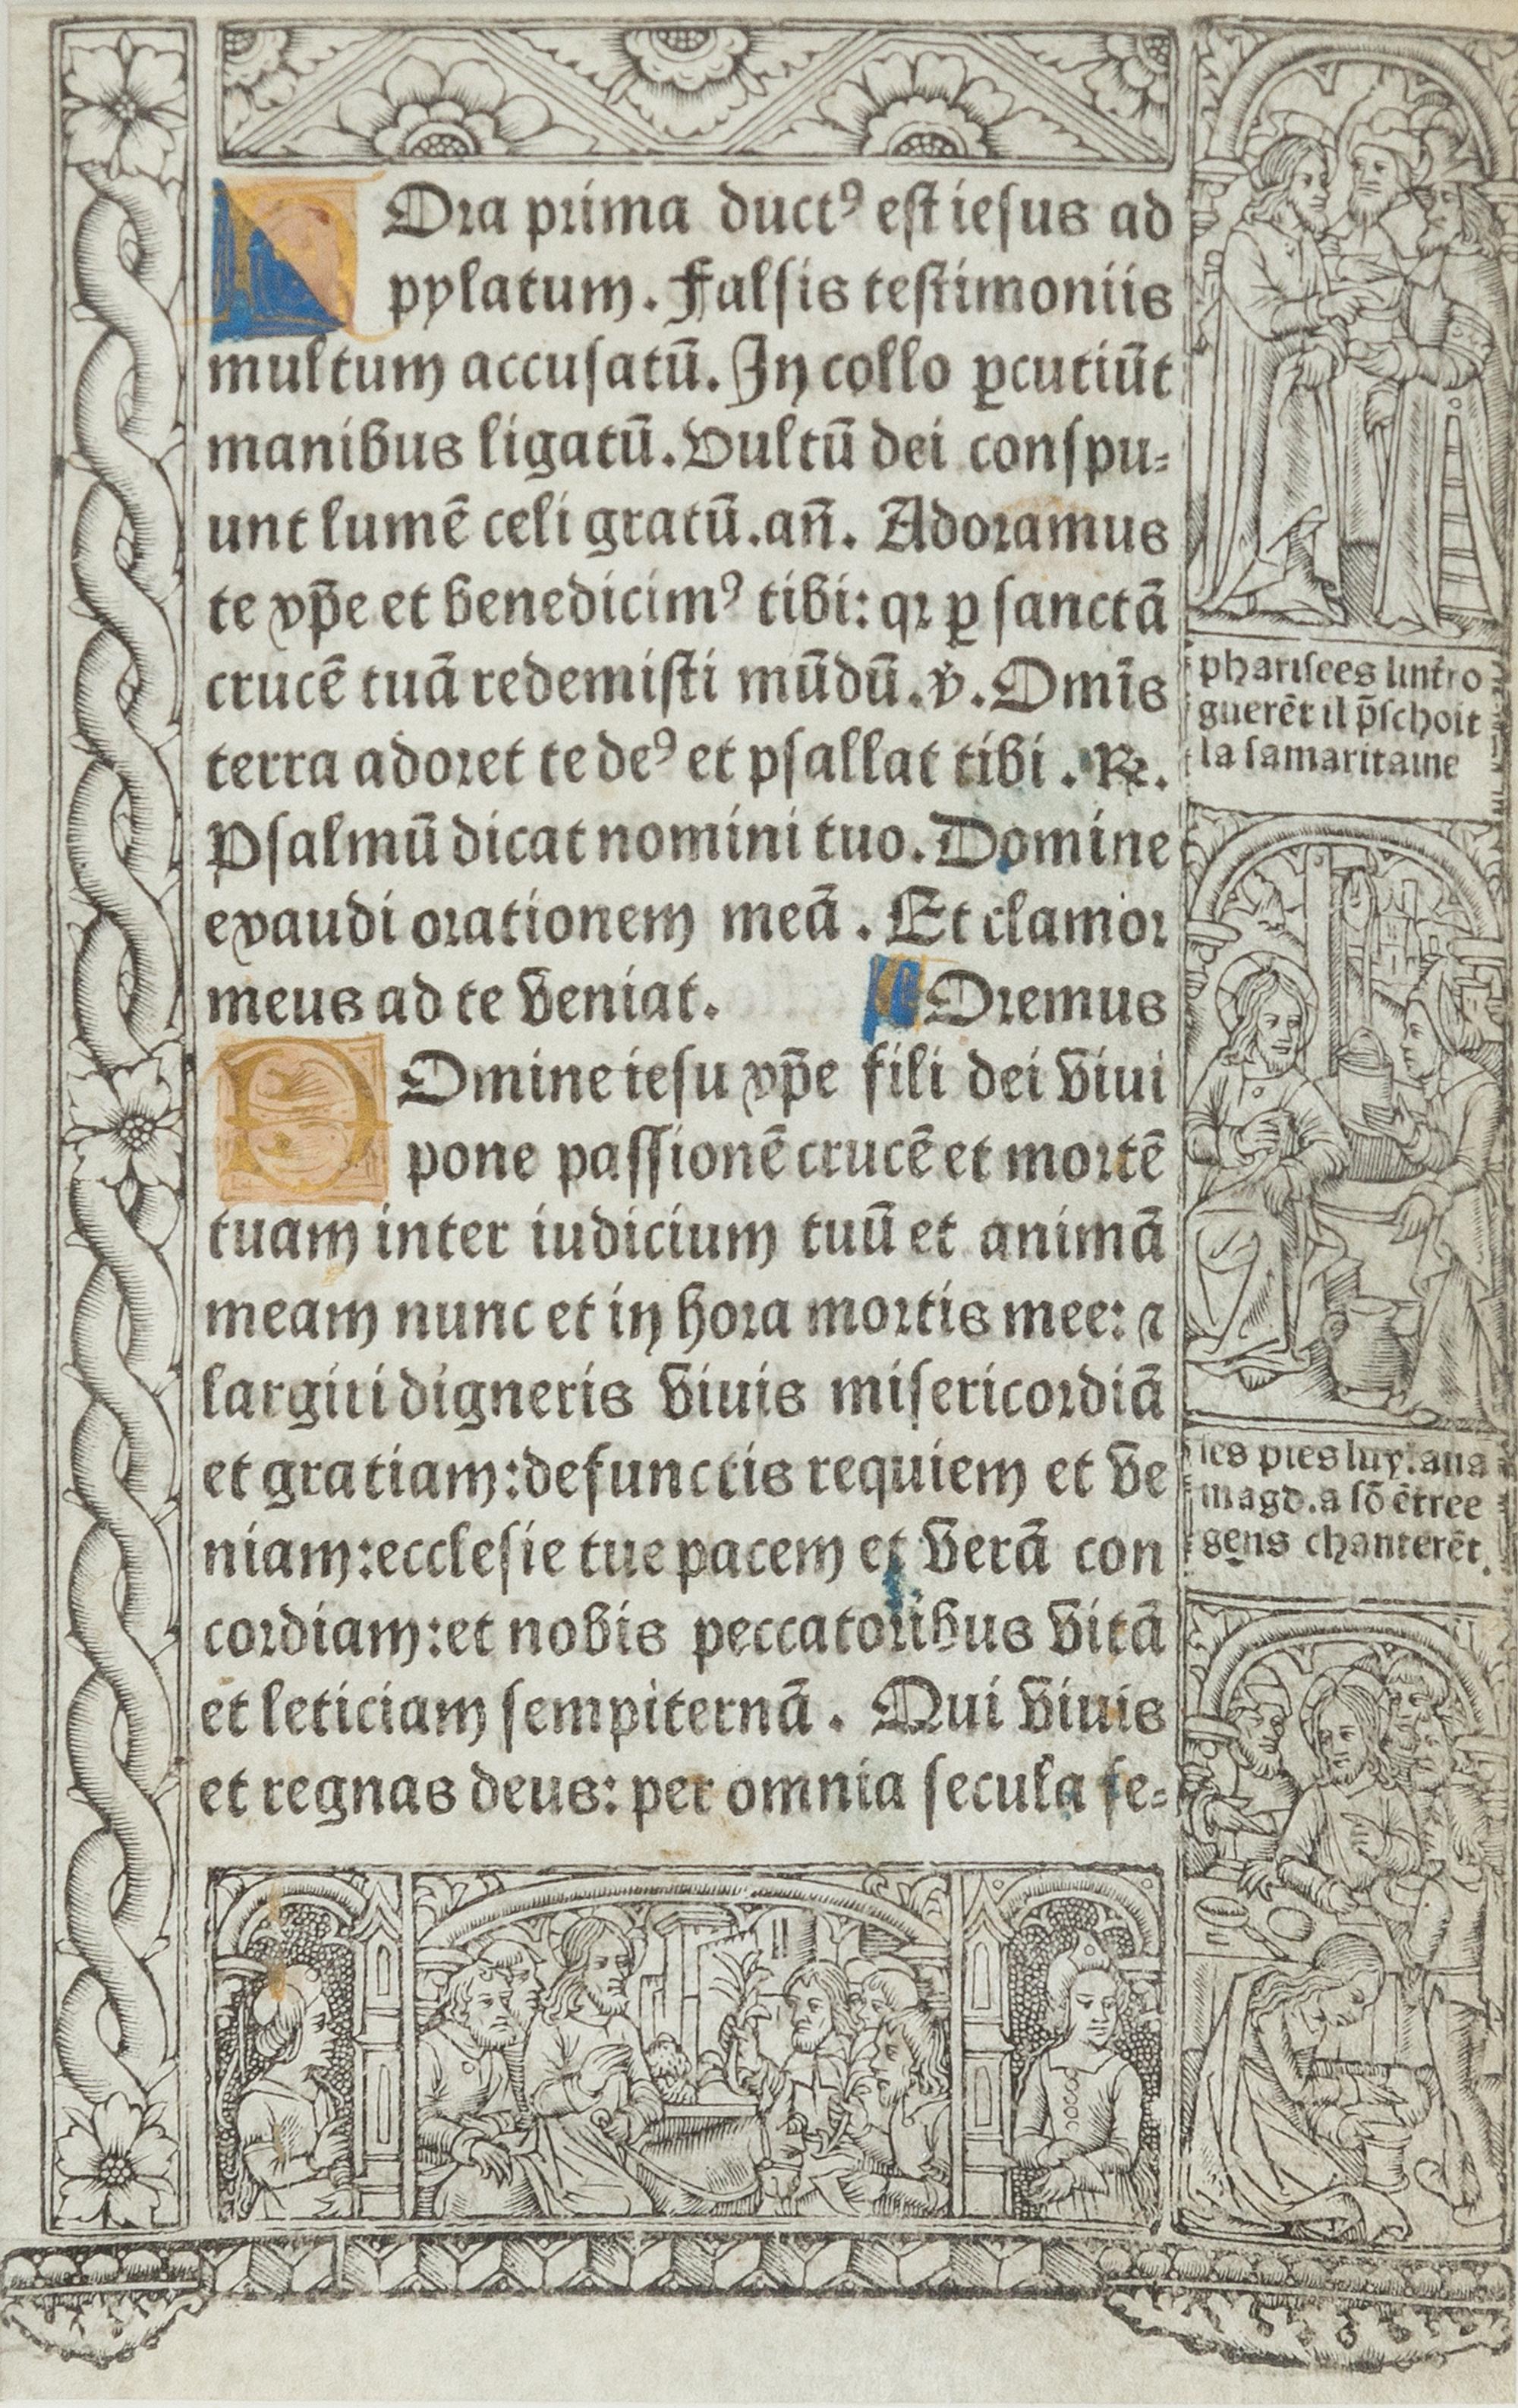 Ora prima ductꝰ est iesus ad
pylatum. Falsis testimoniis
multum accusatū. In collo ꝑcutiūt
manibus ligatū. Vultū dei conspu⸗
unt lumē celi gratū. an̄. Adoramus
te xp̄e et benedicimꝰ tibi: qꝛ ꝑ sanctā
crucē tuā redemisti mūdū. ℣. Omīs
terra adoret te deꝰ et psallat tibi. ℞.
Psalmū dicat nomini tuo. Domine
exaudi orationem meā. Et clamor
meus ad te veniat. Oremus
DOmine iesu xp̄e fili dei viui
pone passionē crucē et mortē
tuam inter iudicium tuū et animā
meam nunc et in hora mortis mee: ⁊
largiri digneris viuis misericordiā
et gratiam: defunctis requiem et ve
niam: ecclesie tue pacem et verā con
cordiam: et nobis peccatoribus vitā
et leticiam sempiternā. Qui viuis
et regnas deus: per omnia secula se⸗
pharisees lintro
guerēt il p̄schoit
la samaritaine
les pies luy laua
magd. a sō ētree
gens chanterēt.